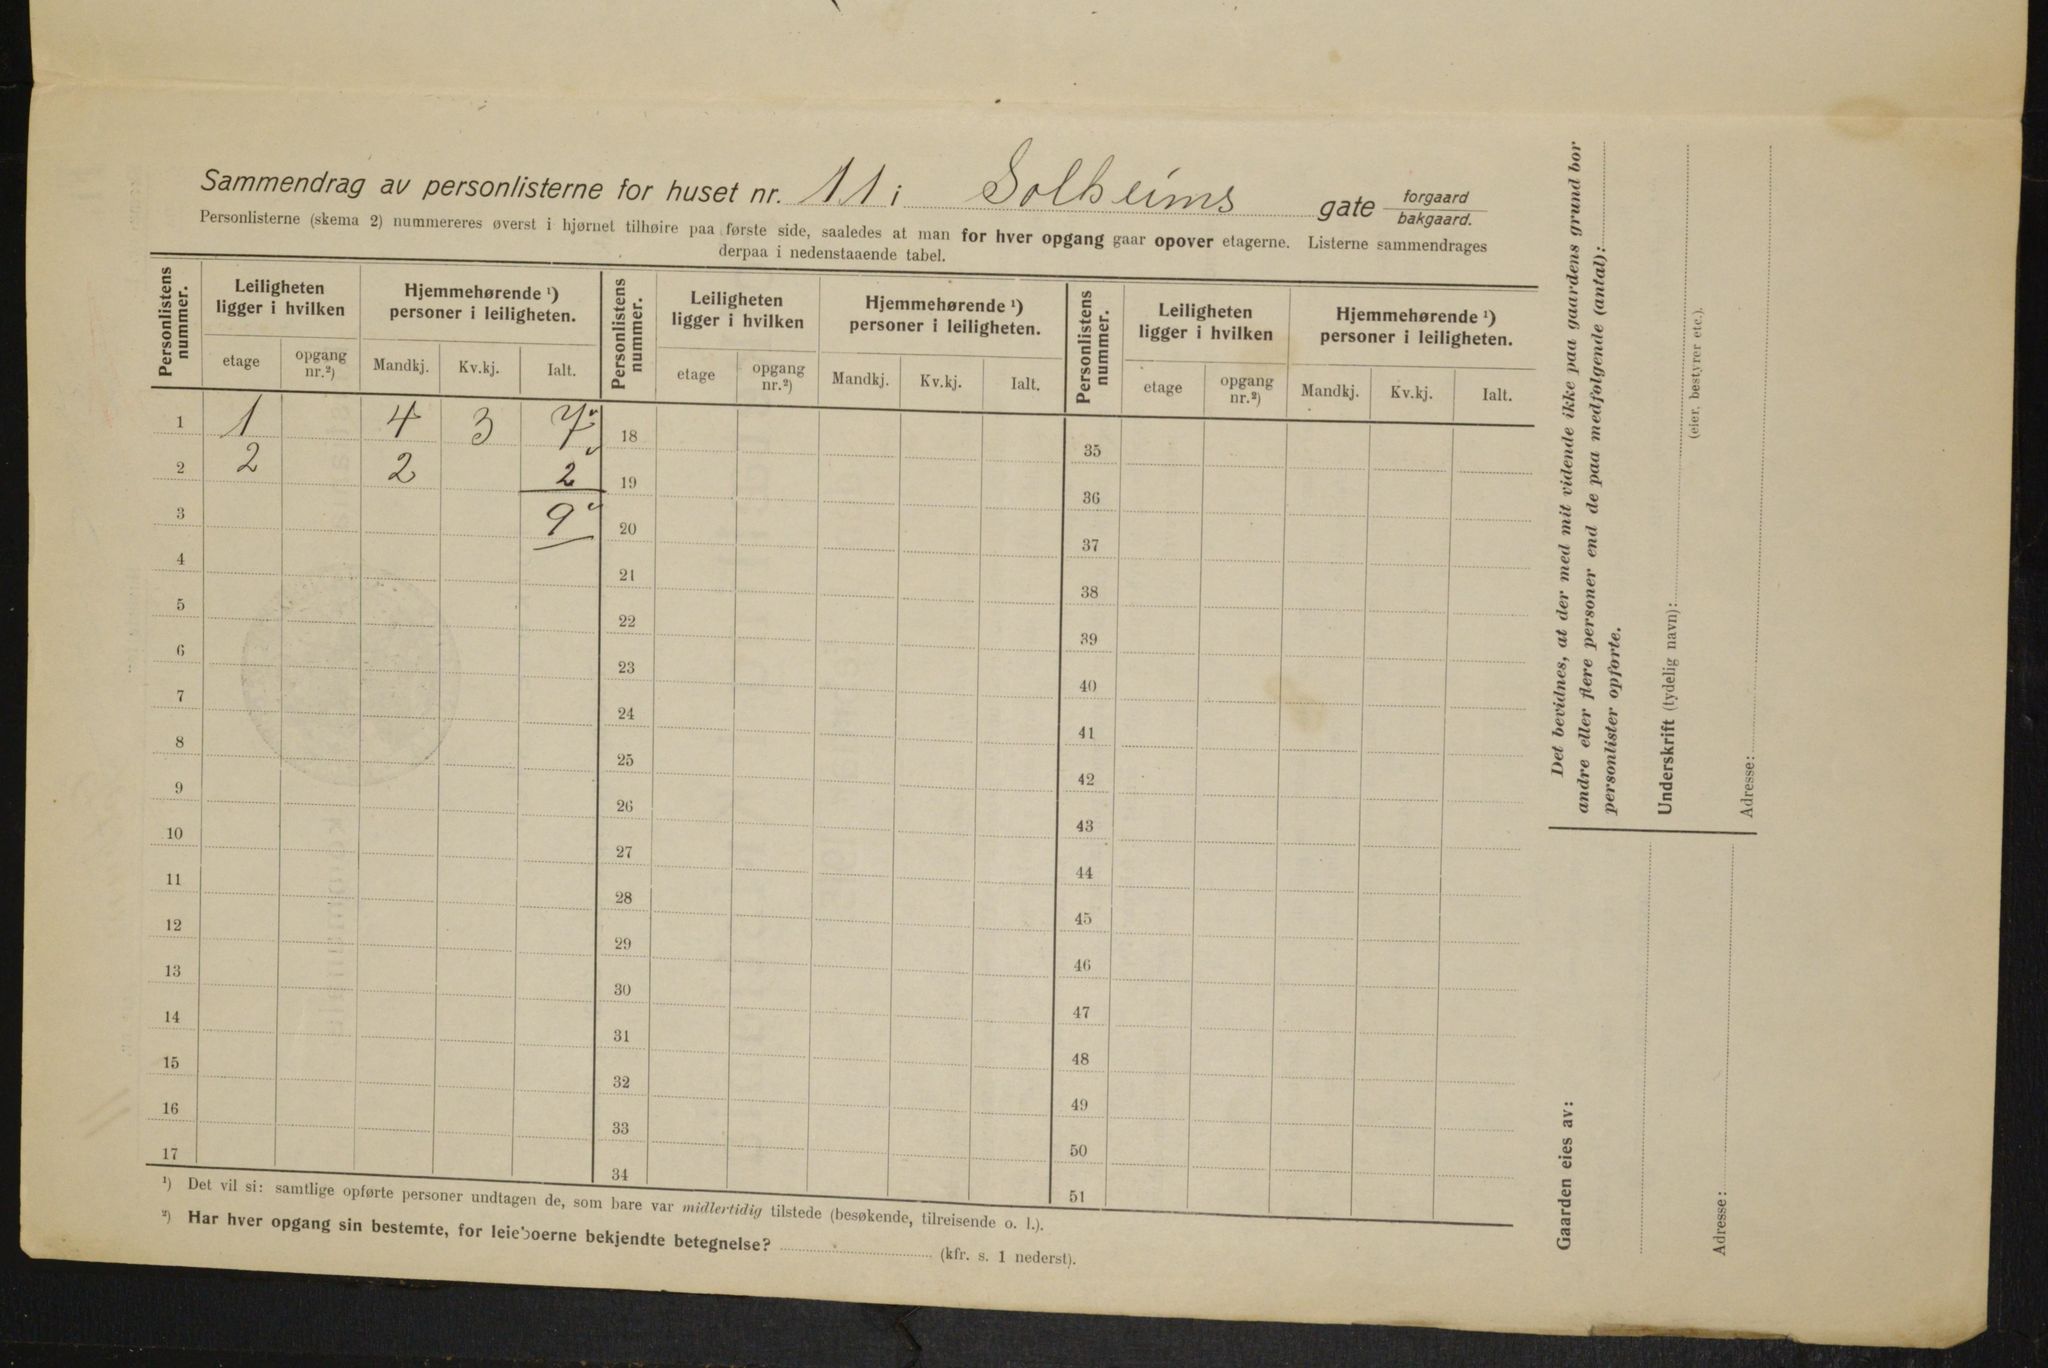 Sammendrag av personlisterne for huset nr. 11 i Solheims gate forgaard bakgaard.
Personlisterne (skema 2) nummereres øverst i hjørnet tilhøire paa første side, saaledes at man for hver opgang gaar opover etagerne. Listerne sammendrages
derpaa i nedenstaaende tabel.
Personlistens nummer. Leiligheten ligger i hvilken Hjemmehørende ¹) personer i leiligheten. Personlistens nummer. Leiligheten ligger i hvilken Hjemmehørende ¹) personer i leiligheten. Personlistens nummer. Leiligheten ligger i hvilken Hjemmehørende ¹) personer i leiligheten.
etage opgang nr.²) Mandkj. Kv.kj. Ialt. etage opgang nr.²) Mandkj. Kv.kj. Ialt. etage opgang nr.²) Mandkj. Kv.kj. Ialt.
1 1 4 3 7 18 35
2 2 2 2 19 36
3 9 20 37
4 21 38
5 22 39
6 23 40
7 24 41
8 25 42
9 26 43
10 27 44
11 28 45
12 29 46
13 30 47
14 31 48
15 32 49
16 33 50
17 34 51
¹) Det vil si: samtlige opførte personer undtagen de, som bare var midlertidig tilstede (besøkende, tilreisende o. l.).
²) Har hver opgang sin bestemte, for leieboerne bekjendte betegnelse? (kfr. s. 1 nederst).
Det bevidnes, at der med mit vidende ikke paa gaardens grund bor
andre eller flere personer end de paa medfølgende (antal):
personlister opførte.
Underskrift (tydelig navn):
(eier, bestyrer etc.).
Adresse:
Gaarden eies av:
Adresse: